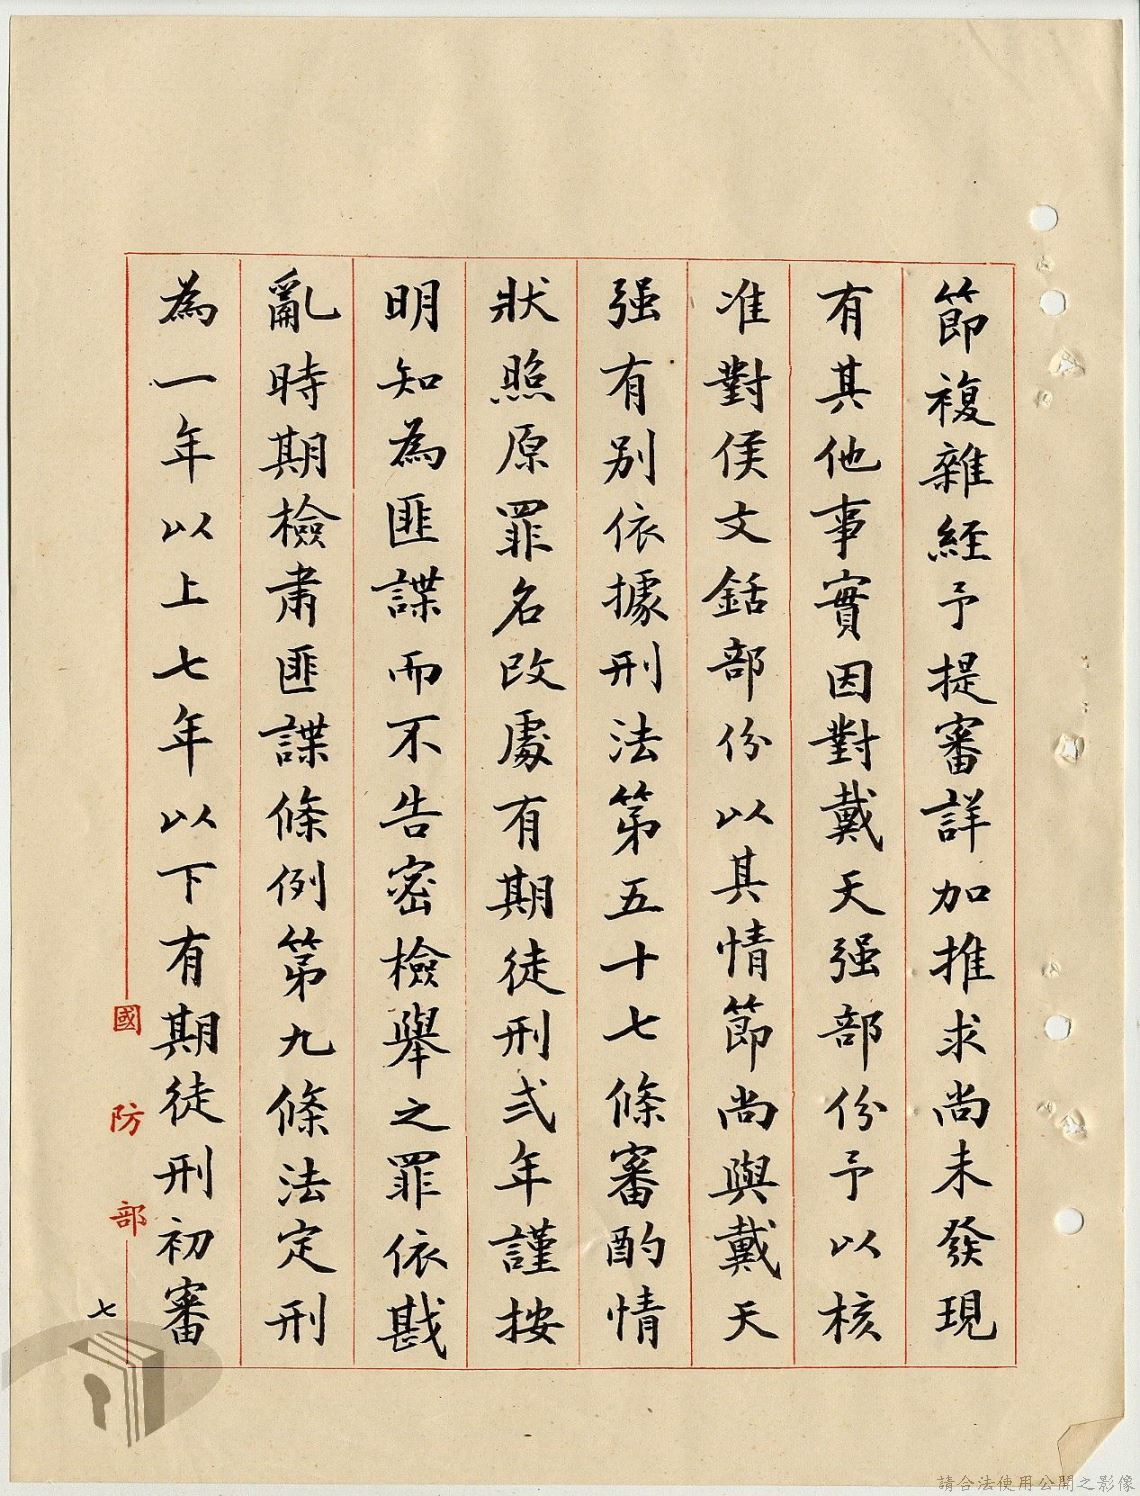 節複雜經予提審詳加推求尚未發現
有其他事實因對戴天强部份予以核
准對侯文銛部份以其情節尚與戴天
强有别依據刑法第五十七條審酌情
狀照原罪名改處有期徒刑弍年謹按
明知為匪諜而不告密檢舉之罪依戡
亂時期檢肅匪諜條例第九條法定刑
為一年以上七年以下有期徒刑初審
國防部
七
請合法使用公開之影像